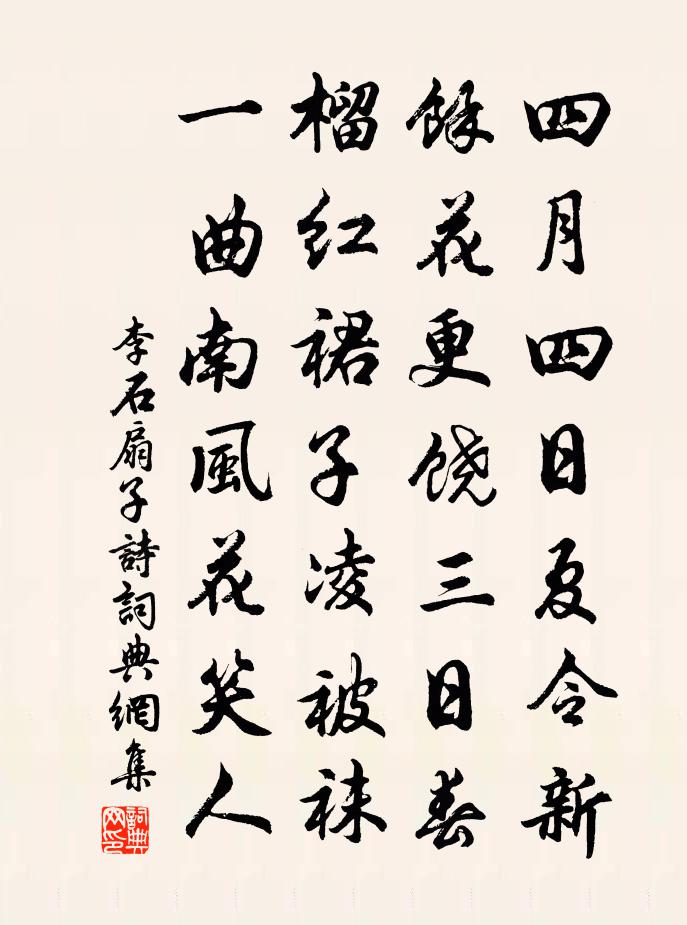 四月四日夏令新
餘花更饒三日春
榴紅裙子凌被袜
一曲南風花笑人
李石扇子詩詞典網集
詞典网印